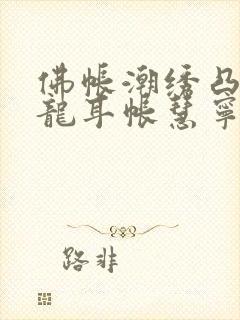 佛帐潮绣凸
龍耳帐慧寧
路非